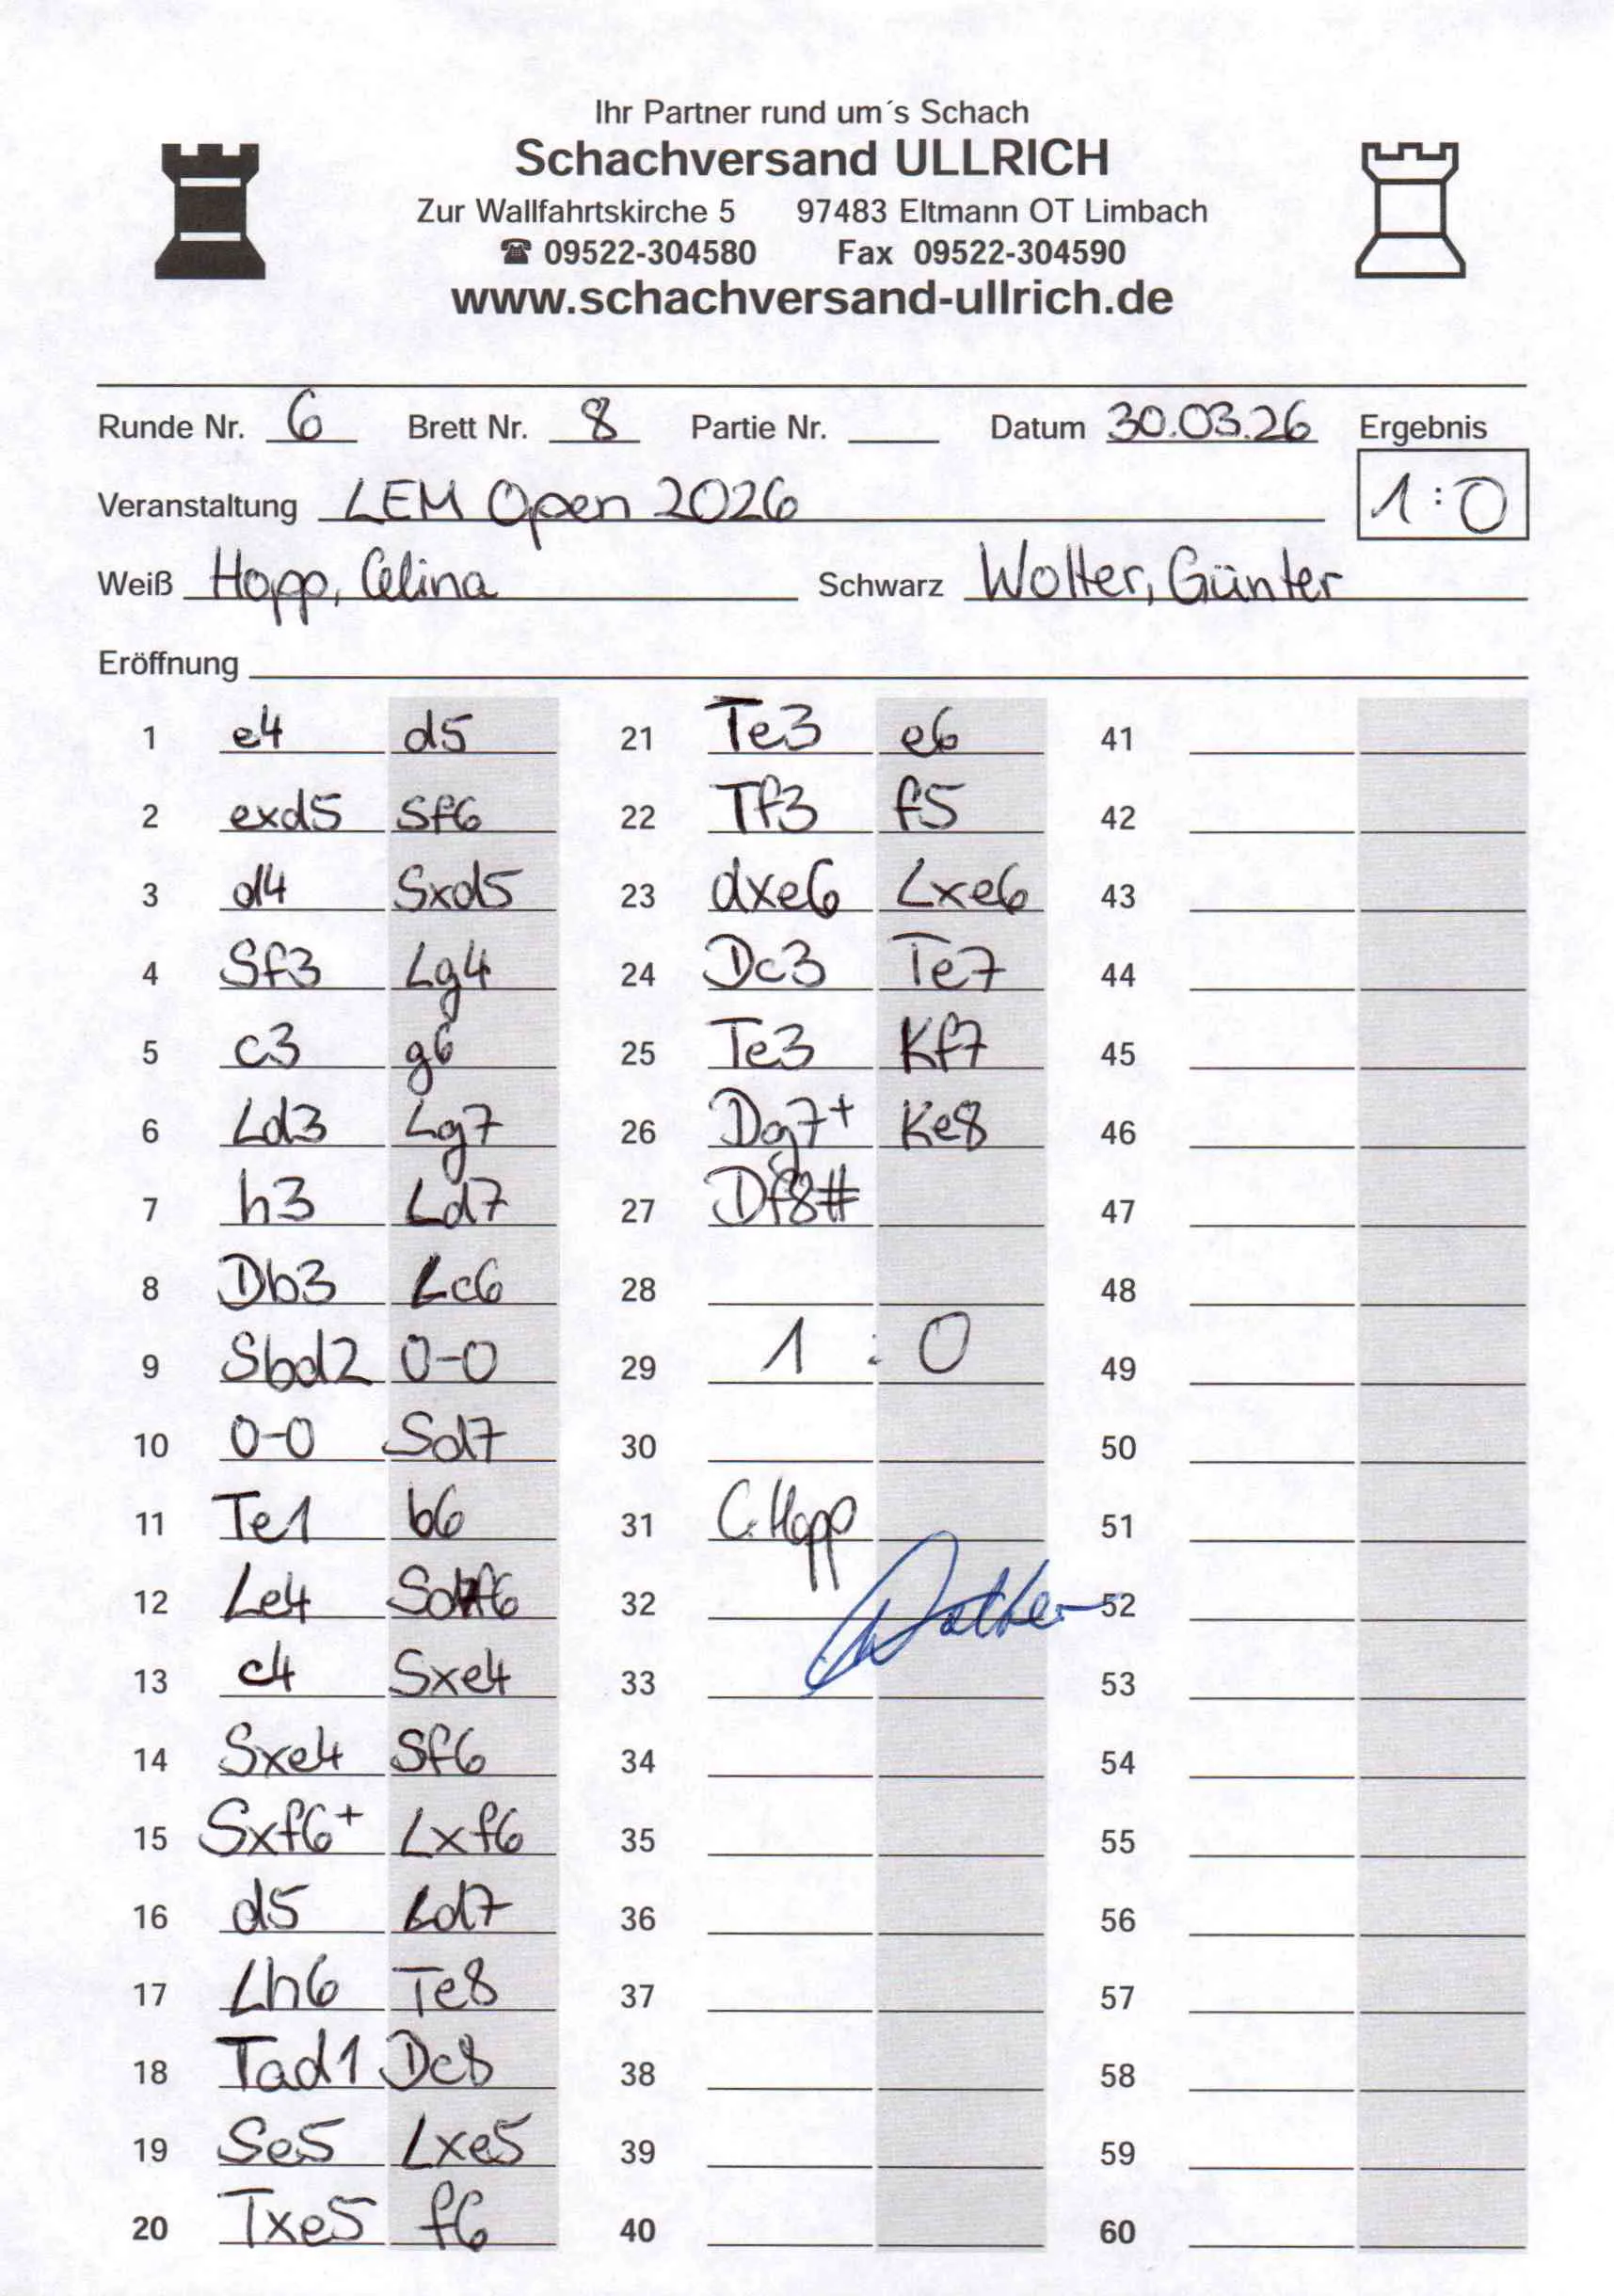 Ihr Partner rund um´s Schach
Schachversand ULLRICH
Zur Wallfahrtskirche 5 97483 Eltmann OT Limbach
☎ 09522-304580 Fax 09522-304590
www.schachversand-ullrich.de
Runde Nr. 6 Brett Nr. 8 Partie Nr. Datum 30.03.26 Ergebnis
1:0
Veranstaltung LEM Open 2026
Weiß Hopp, Celina Schwarz Wolter, Günter
Eröffnung
1 e4 d5 21 Te3 e6 41
2 exd5 Sf6 22 Tf3 f5 42
3 d4 Sxd5 23 dxe6 Lxe6 43
4 Sf3 Lg4 24 Dc3 Te7 44
5 c3 g6 25 Te3 Kf7 45
6 Ld3 Lg7 26 Dg7+ Ke8 46
7 h3 Ld7 27 Df8# 47
8 Db3 Lc6 28 48
9 Sbd2 0-0 29 1 : 0 49
10 0-0 Sd7 30 50
11 Te1 b6 31 C. Hopp 51
12 Le4 32 Wolter 52
13 c4 Sxe4 33 53
14 Sxe4 Sf6 34 54
15 Sxf6+ Lxf6 35 55
16 d5 Ld7 36 56
17 Lh6 Te8 37 57
18 Tad1 Dc8 38 58
19 Se5 Lxe5 39 59
20 Txe5 f6 40 60